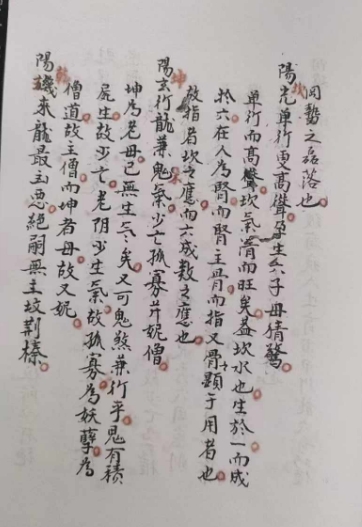 岡勢之磊落也
陽光單行更高聳孕生六子毋猜驚
單行而高聳坎氣清而旺矣蓋坎水也生於一而成
於六在人為腎而腎主骨而指又骨顯于用者也
故指者坎之應而六成數之應也
陽玄行龍兼鬼氣少亡孤寡并妮僧
坤為老母已無生氣矣又可鬼煞兼行乎鬼有積
屍生故少亡老阴少生氣故孤寡為妖孽為
僧道故主僧而坤者母故又妮
陽璣來龍最主惡絕嗣無主墳荆榛